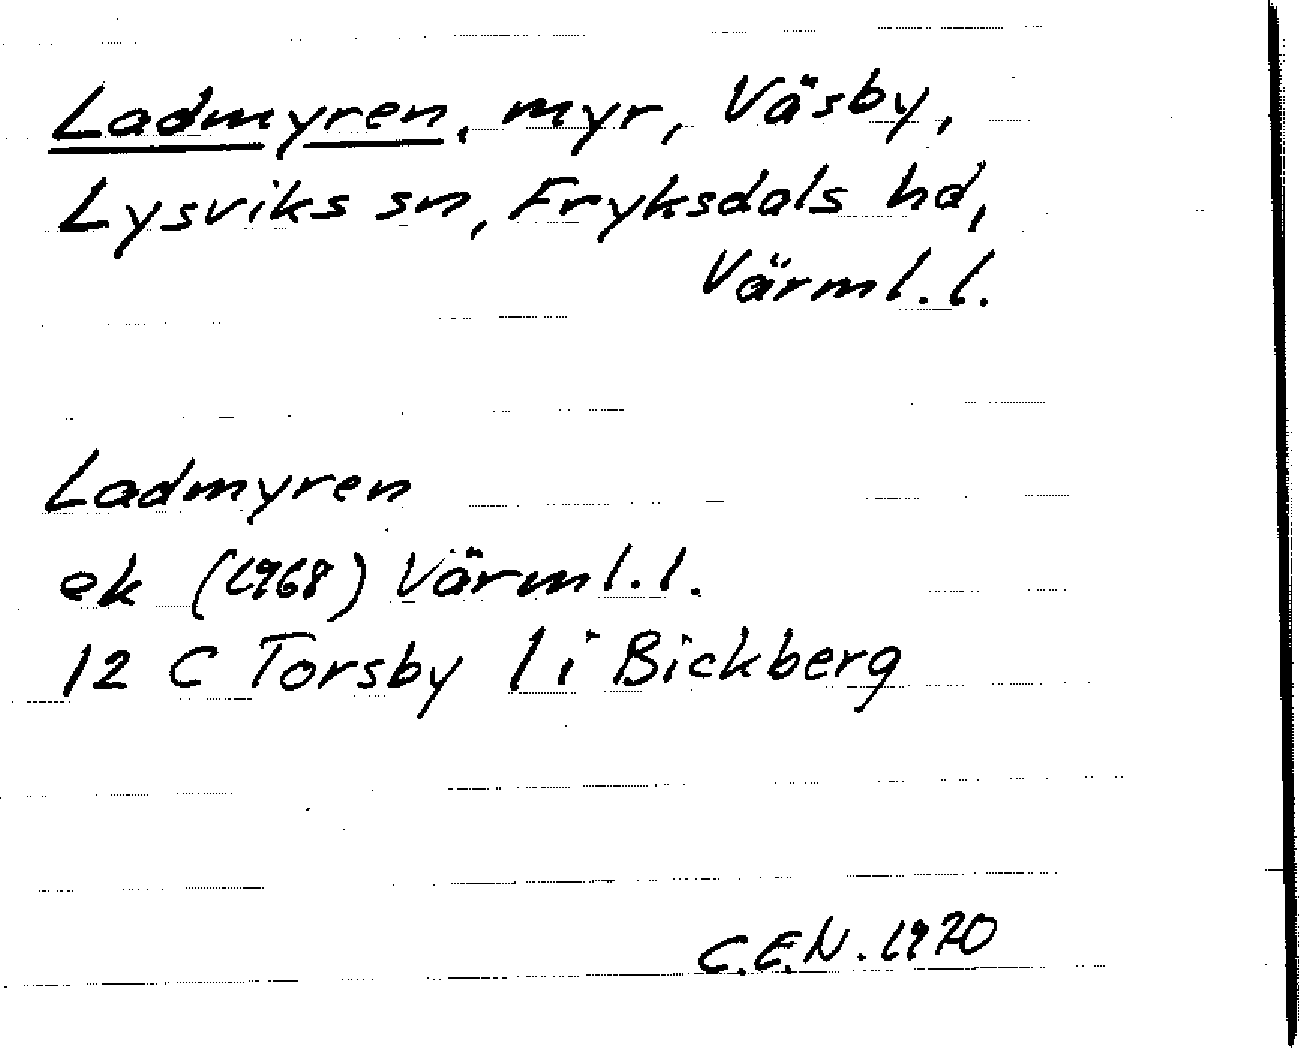 Ladmyren, myr, Väsby,
Lysviks sn, Fryksdals hd,
Värml.l.
Ladmyren
ek (1968) Värml.l.
12 C Torsby 1 i Bickberg
C.E.N. 1970